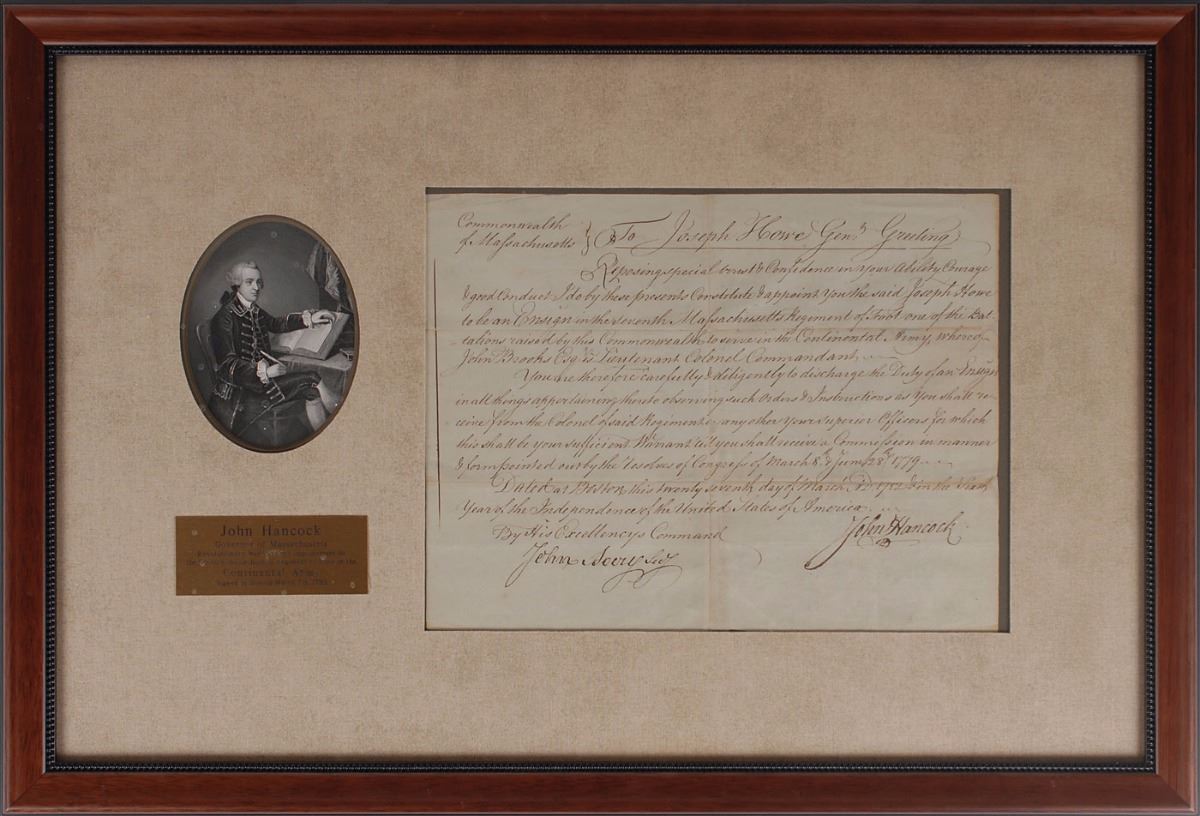 Commonwealth
of Massachusetts } To Joseph Howe Genᵗ Greeting
Reposing special trust & Confidence in your Ability Courage
& good Conduct I do by these presents Constitute & appoint You the said Joseph Howe
to be an Ensign in the seventh Massachusetts Regiment of Foot one of the Bat-
talions raised by this Commonwealth to serve in the Continental Army, whereof
John Brooks Esqʳ is Lieutenant Colonel Commandant
You are therefore carefully & diligently to discharge the Duty of an Ensign
in all things appertaining thereto observing such Orders & Instructions as You shall re-
ceive from the Colonel of said Regiment or any other your superior Officers for which
this shall be your sufficient Warrant till you shall receive a Commission in manner
& form pointed out by the resolves of Congress of March 8ᵗʰ & June 28ᵗʰ 1779
Dated at Boston this twenty seventh day of March AD & in the
Year of the Independence of the United States of America
By His Excellencys Command
John Hancock
John Avery Secy
John Hancock
Governor of Massachusetts
Continental Army